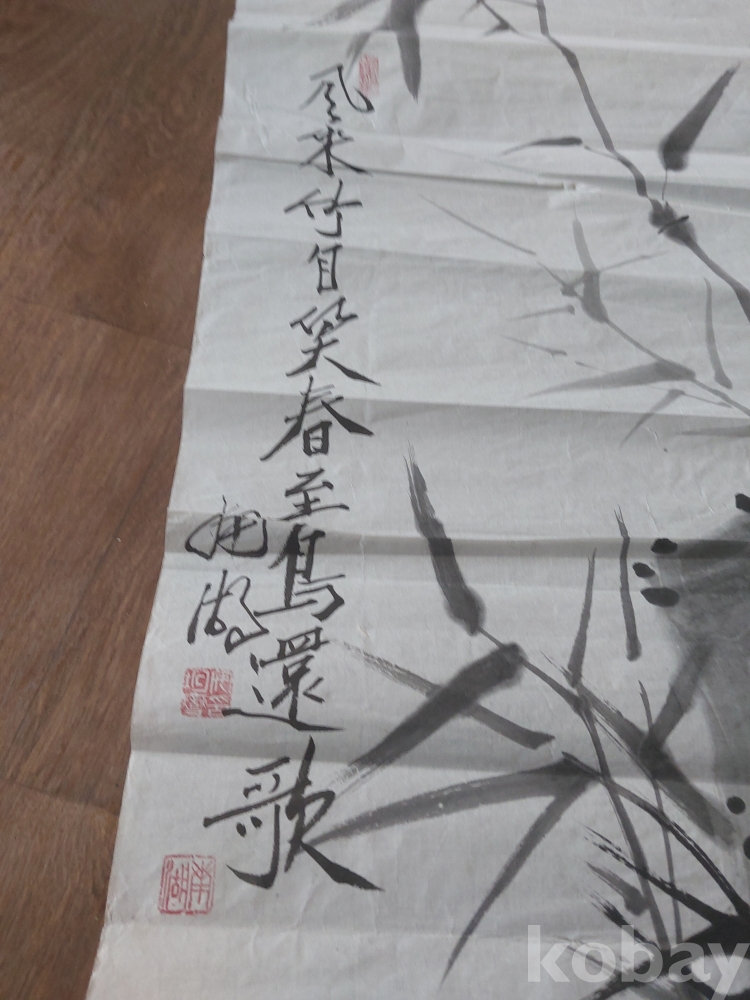 風來竹自笑春至鳥還歌
湖
南湖
kobay